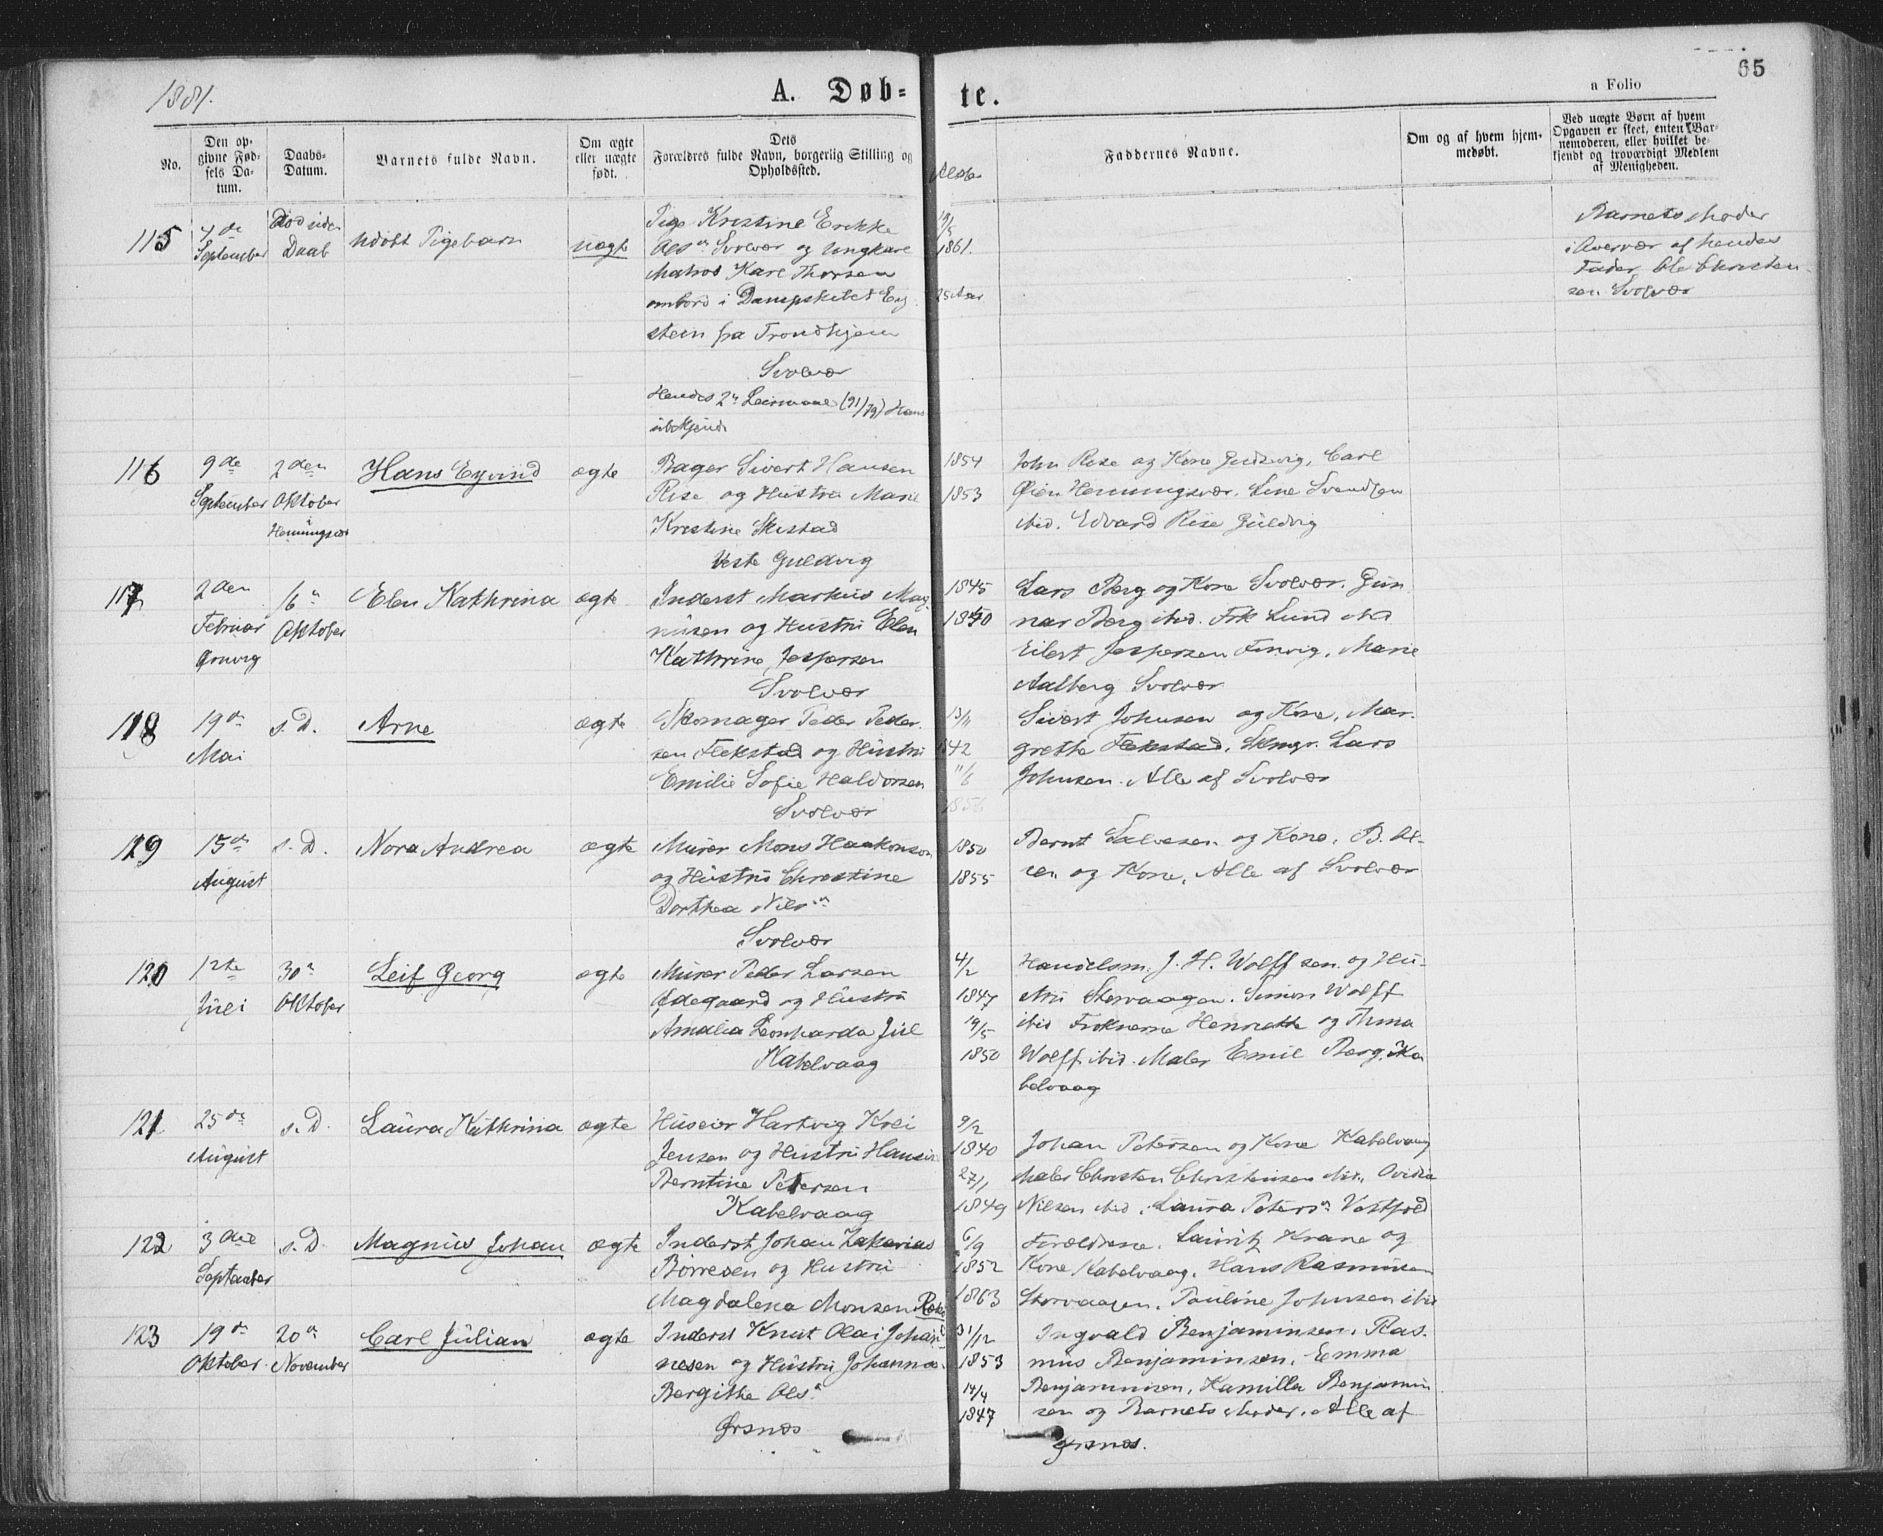 1881.
A. Døb-
te.
65
a Folio
No.
Den op-
givne Fød-
sels Da-
tum.
Daabs-
Datum.
Barnets fulde Navn.
Om ægte
eller uægte
født.
Dets
Forældres fulde Navn, borgerlig Stilling og
Opholdssted.
Alder
Faddernes Navne.
Om og af hvem hjem-
medøbt.
Ved uægte Børn af hvem
Opgaven er skeet, enten Bar-
nemoderen, eller hvilket be-
kjendt og troværdigt Medlem
af Menigheden.
115
7de
September
Død uden
Daab
udøbt Pigebarn
uægte
Pige Kristine Erikke
Olsn Svolvær og Ungkarl
Matros Karl Thorsen
ombord i Dampskibet Ey
stein fra Trondhjem
Svolvær
Hendes 2n Leiermaal (91/79) Hans
ubekjendt
19/5
1861.
25 Aar
Barnets Moder
af hendes
Fader Ole Christen-
sen Svolvær
116
9de
September
2den
Oktober
i
Henningsvær
Hans Eyvind
ægte
Bager Sivert Hansen
Rise og Hustru Marie
Kristine Skistad
Veste Guldvig
1854
1853
John Rise og Kone Guldvig, Carl
Øien Henningsvær, Line Svendsen
ibid. Edvard Rise Guldvig
117
2den
Februar
16n
Oktober
Elen Kathrina
ægte
Inderst Markus Mag-
nusen og Hustru Elen
Kathrine Jespersen
Svolvær
1845
1840
Lars Berg og Kone Svolvær. Gun
nar Berg ibid. Frk Lund ibid
Eilert Jespersen Finvig, Marie
Aalberg Svolvær
118
19de
Mai
s. D.
Arne
ægte
Skomager Peder Peder-
sen Flekstad og Hustru
Emilie Sofie Haldorsen
Svolvær
13/11
1842
11/6
Sivert Johnsen og Kone, Mar-
grethe Flekstad, Skmgr. Lars
Johnsen. Alle af Svolvær
119
15de
August
s. D.
Nora Andrea
ægte
Murer Mons Haakonson
og Hustru Christine
Dorthea Nilsn
Svolvær
1850
1855
Bernt Salvesen og Kone, B. Ol-
sen og Kone, Alle af Svolvær
120
12te
Juli
30n
Oktober
Leif Georg
ægte
Murer Peder Larsen
Ødegaard og Hustru
Amalia Leonharda Juel
Kabelvaag
4/2
1847
19/5
1850
Handelsm. J. H. Wolff sen. og Hu-
stru Storvaagen. Simon Wolff
ibid Frøknerne Henriette og Thma
Wolff ibid. Maler Emil Berg, Ka
belvaag
121
25de
August
s. D.
Laura Kathrina
ægte
Huseier Hartvig Krei
Jensen og Hustru Hansine
Berntine Petersen
Kabelvaag
9/2
1840
27/1
1849
Johan Petersen og Kone Kabelvaag
Maler Christen Christensen ibid., Ovidia
Nilsen ibid, Laura Petersn Vestfold
122
3die
September
s. D.
Magnus Johan
ægte
Inderst Johan Zakarias
Børresen og Hustru
Magdalena Monsen
6/9
1852
1863
Forældrene. Lauritz Krane og
Kone Kabelvaag, Hans Rasmussen
Storvaagen, Pauline Johnsen ibid
123
19de
Oktober
20n
November
Carl Julian
ægte
Inderst Knut Olai Johan-
nesen og Hustru Johanna
Bergithe Olsn
Ørsnæs
31/12
1853
14/4
1847
Ingvald Benjaminsen, Ras-
mus Benjaminsen, Emma
Benjaminsen, Kamilla Benjamin
sen og Barnets Moder, Alle af
Ørsnæs.